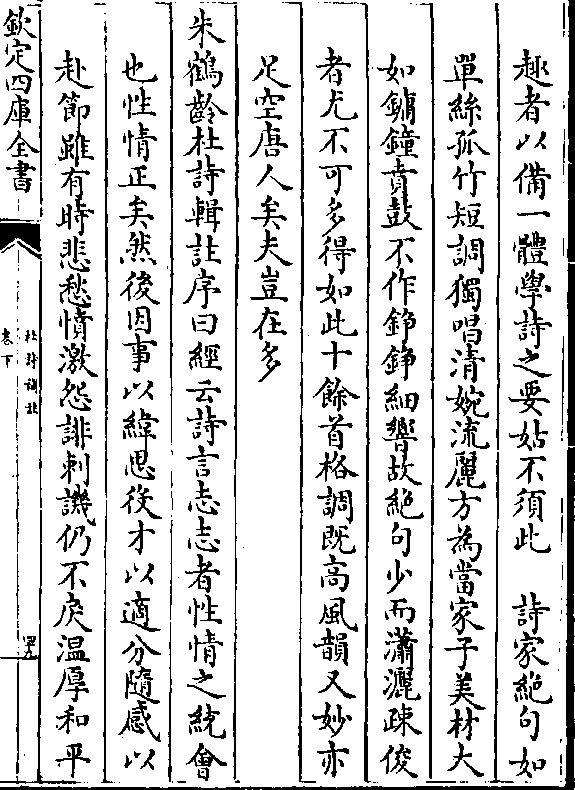 趣者以備一體學詩之要姑不須此　詩家絶句如
單絲孤竹短調獨唱清婉流麗方為當家子美材大
如鏞鐘賁鼓不作錚錚細響故絶句少而瀟灑疎俊
者尤不可多得如此十餘首格調既高風韻又妙亦
足空唐人矣夫豈在多
朱鶴齡杜詩輯註序曰經云詩言志志者性情之統會
也性情正矣然後因事以緯思役才以適分隨感以
赴節雖有時悲愁憤激怨誹刺譏仍不戾温厚和平
欽定四庫全書
杜詩攟
卷下